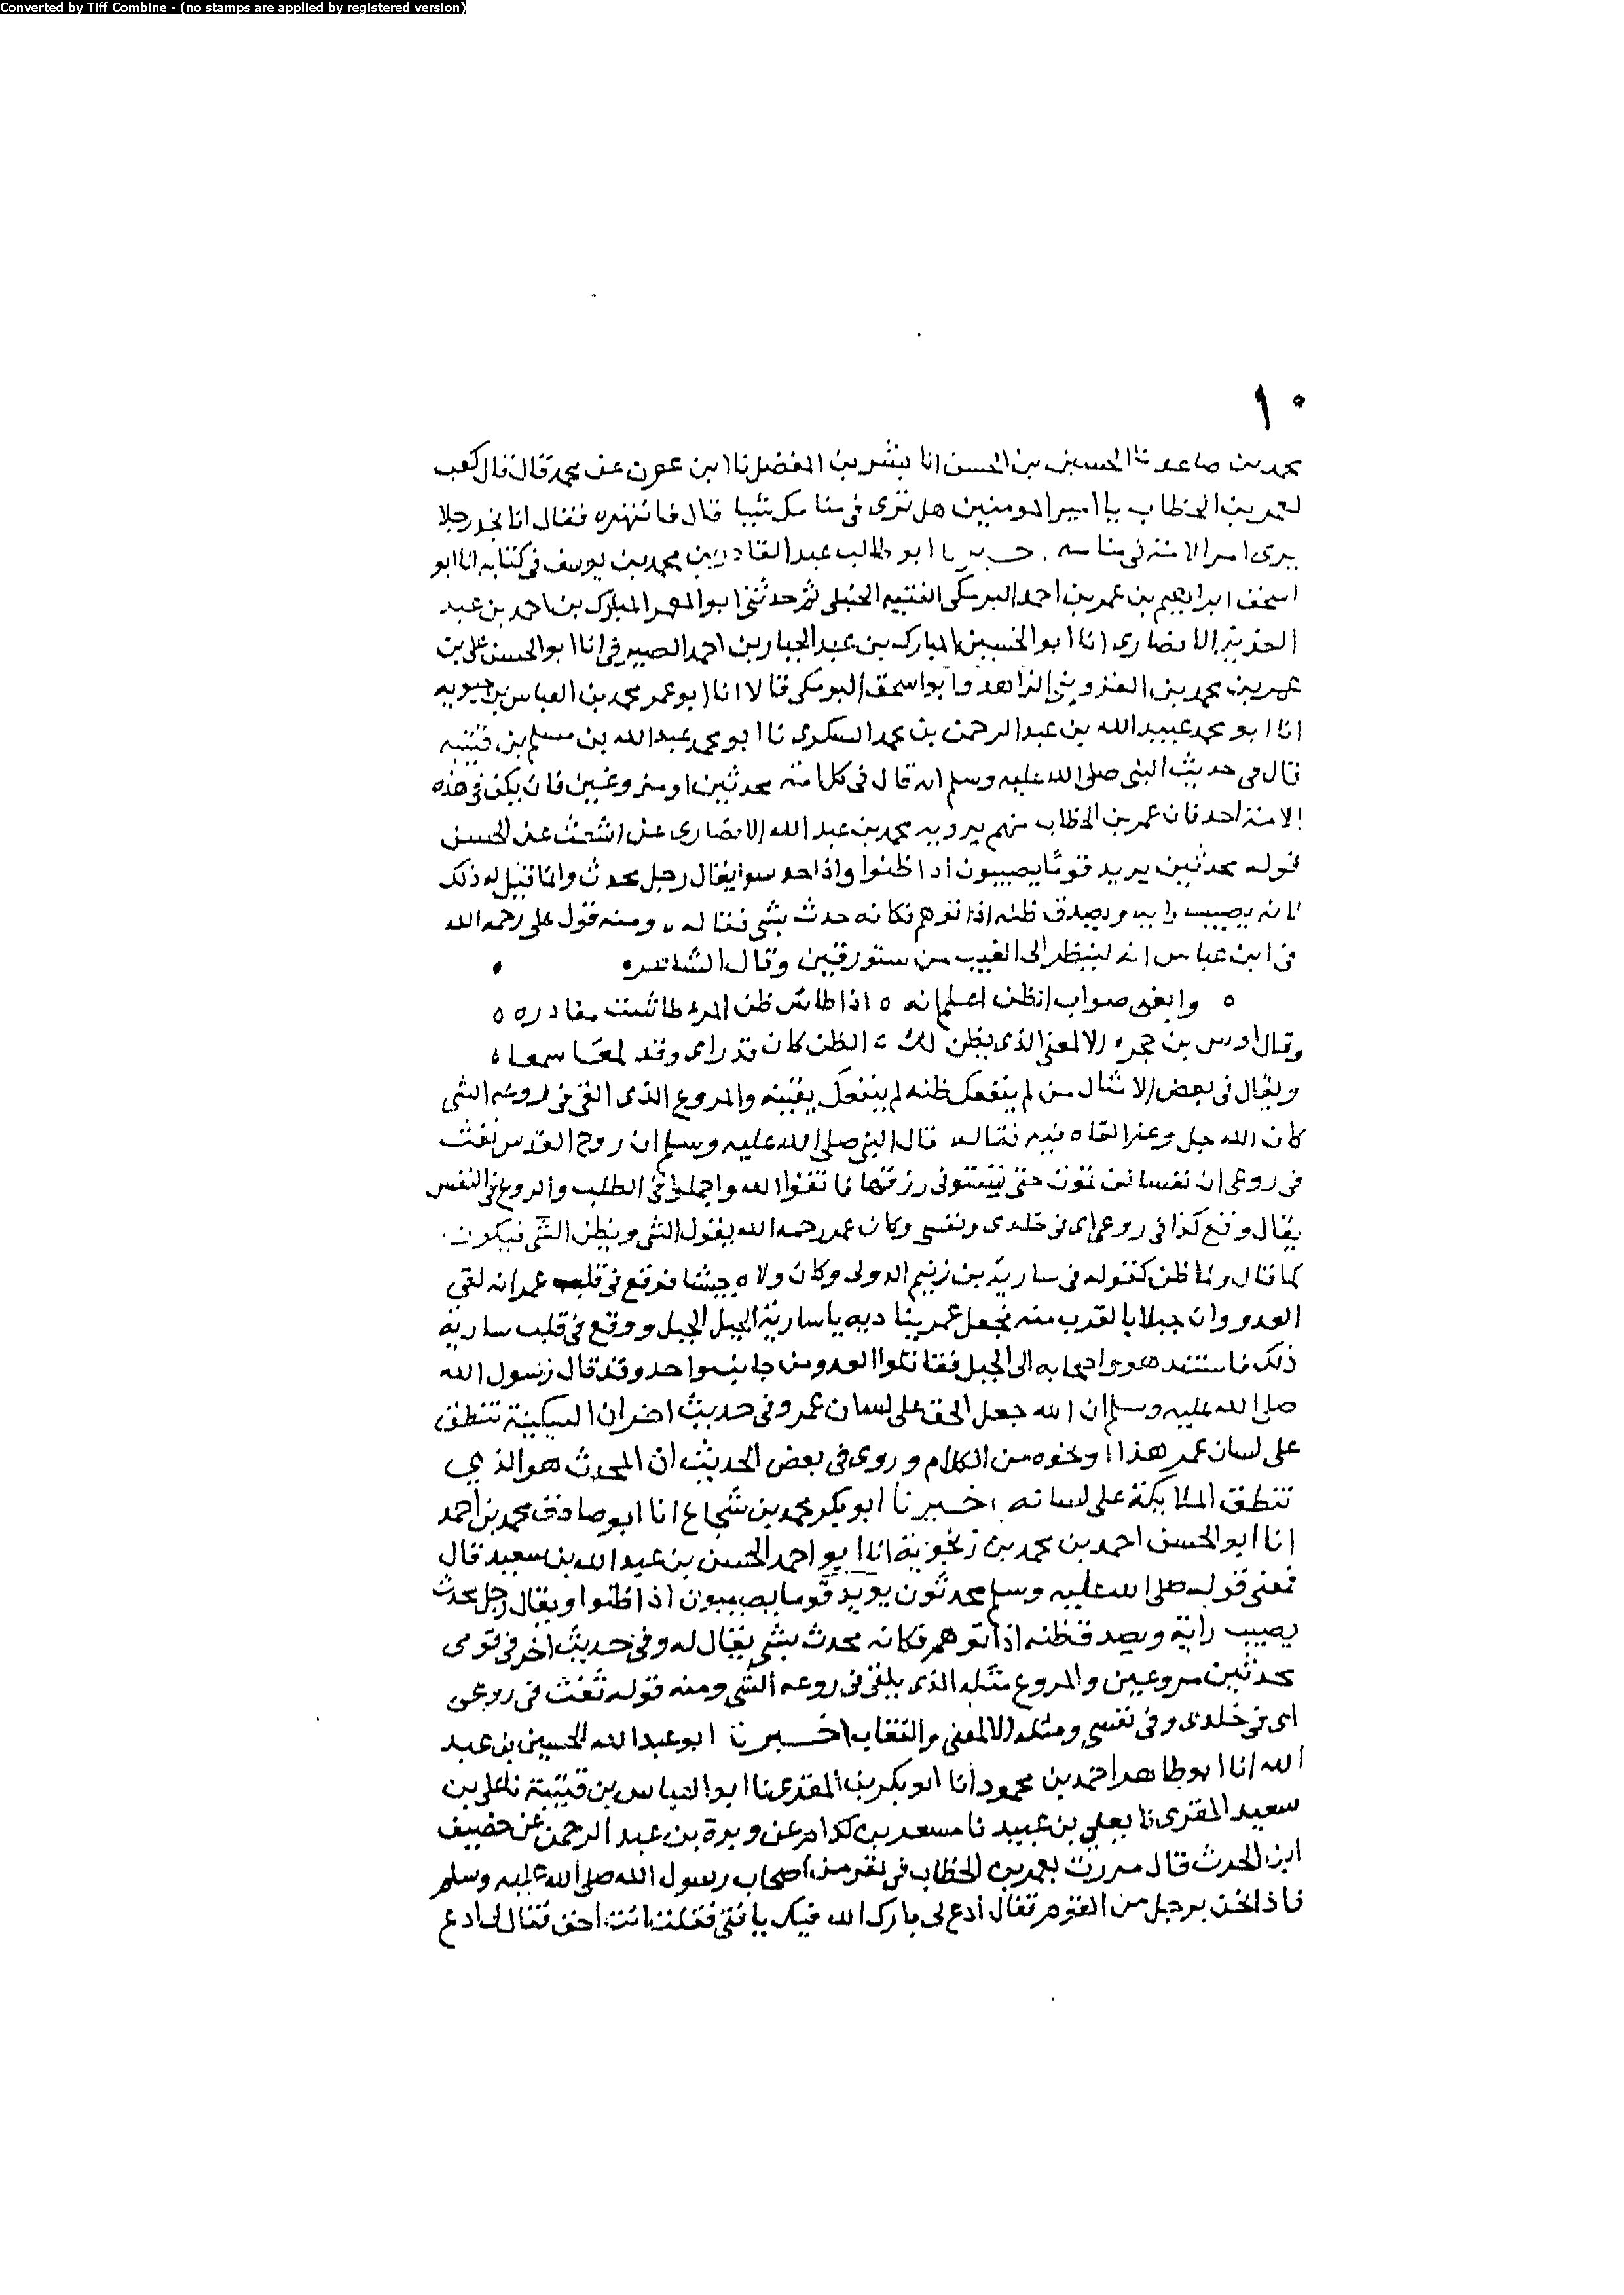 Converted by Tiff Combine - (no stamps are applied by registered version)
١٠
محمد بن صاعد نا الحسين بن الحسن انا بشر بن المفضل نا ابن عون عن محمد قال قال كعب
لعمر بن الخطاب يا امير المومنين هل ترى في منامك شيا قال فانتهره فقال انا نجد رجلا
يرى امر الامة في منامه . اخبرنا ابو طالب عبد القادر بن محمد بن يوسف في كتابه انا ابو
اسحق ابراهيم بن عمر بن احمد البرمكي الفقيه الحنبلي ثم حدثني ابو المعمر المبارك بن احمد بن عبد
العزيز الانصاري انا ابو الحسين المبارك بن عبد الجبار بن احمد الصيرفي انا ابو الحسن علي بن
عمر بن محمد بن القزويني الزاهد وابو اسحق البرمكي قالا انا ابو عمر محمد بن العباس بن حيويه
انا ابو محمد عبيد الله بن عبد الرحمن بن محمد السكري نا ابو محمد عبد الله بن مسلم بن قتيبه
قال في حديث النبي صلى الله عليه وسلم انه قال في كل امة محدثين او مروعين فان يكن في هذه
الامة احد فان عمر بن الخطاب منهم يرويه محمد بن عبد الله الانصاري عن اشعث عن الحسن
قوله محدثين يريد قوما يصيبون اذا ظنوا واذا حدسوا يقال رجل محدث وانما قيل له ذلك
لانه يصيب رايه ويصدق ظنه اذا توهم فكانه حدث بشي فقاله ، ومنه قول علي رحمه الله
في ابن عباس انه لينظر الى الغيب من ستر رقيق وقال الشاعره
٥ وابغى صواب الظن اعلم انه ٥ اذا طاش ظن المرء طاشت مقادره ٥
وقال اوس بن حجره الالمعي الذي يظن لك ٥ الظن كان قد راى وقد لمعا سمعا ٥
ويقال في بعض الامثال من لم ينفعك ظنه لم ينفعك يقينه والمروع الذي القي في روعه الشي
كان الله جل وعز القاه فيه فقاله قال النبي صلى الله عليه وسلم ان روح القدس نفث
في روعي ان نفسا لن تموت حتى تستوفي رزقها فاتقوا الله واجملوا في الطلب والروع في النفس
يقال وقع كذا في روعي اي في خلدي ونفسي وكان عمر رحمه الله يقول الشي ويظن الشي فيكون .
كما قال وما ظن كقوله في سارية بن زنيم الدولي وكان ولاه جيشا فوقع في قلب عمر انه لقي
العدو وان جبلا بالقرب منه فجعل عمر يناديه يا سارية الجبل الجبل ووقع في قلب سارية
ذلك فاستند هو واصحابه الى الجبل فقاتلوا العدو من جانب واحد وقد قال رسول الله
صلى الله عليه وسلم ان الله جعل الحق على لسان عمر وفي حديث اخر ان السكينة تنطق
على لسان عمر هذا او نحوه من الكلام وروى في بعض الحديث ان المحدث هو الذي
تنطق الملايكة على لسانه ، اخبرنا ابو بكر محمد بن شجاع انا ابو صادق محمد بن احمد
انا ابو الحسن احمد بن محمد بن زنجويه انا ابو احمد الحسن بن عبد الله بن سعيد قال
فمعنى قوله صلى الله عليه وسلم محدثون يريد قوما يصيبون اذا ظنوا ويقال رجل محدث
يصيب راية ويصدق ظنه اذا توهم فكانه محدث بشي يقال له وفي حديث اخر في قومي
محدثين مروعين والمروع مثله الذي يلقى في روعه الشي ومنه قوله نفث في روعي
اي في خلدي وفي نفسي ومثله الالمعي والنقاب اخبرنا ابو عبد الله الحسين بن عبد
الله انا ابو طاهر احمد بن محمود انا ابو بكر بن المقري نا ابو العباس بن قتيبة نا علي بن
سعيد المقري نا يعلى بن عبيد نا مسعر بن كدام عن وبرة بن عبد الرحمن عن غضيف
ابن الحرث قال مررت بعمر بن الخطاب في نفر من اصحاب رسول الله صلى الله عليه وسلم
فاذا نحن برجل من القوم فقال ادع لي بارك الله فيك يا فتى فقلت انت احق فقال لي ادع